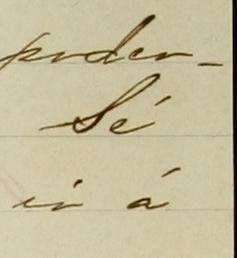 poder_
Sé
ir á